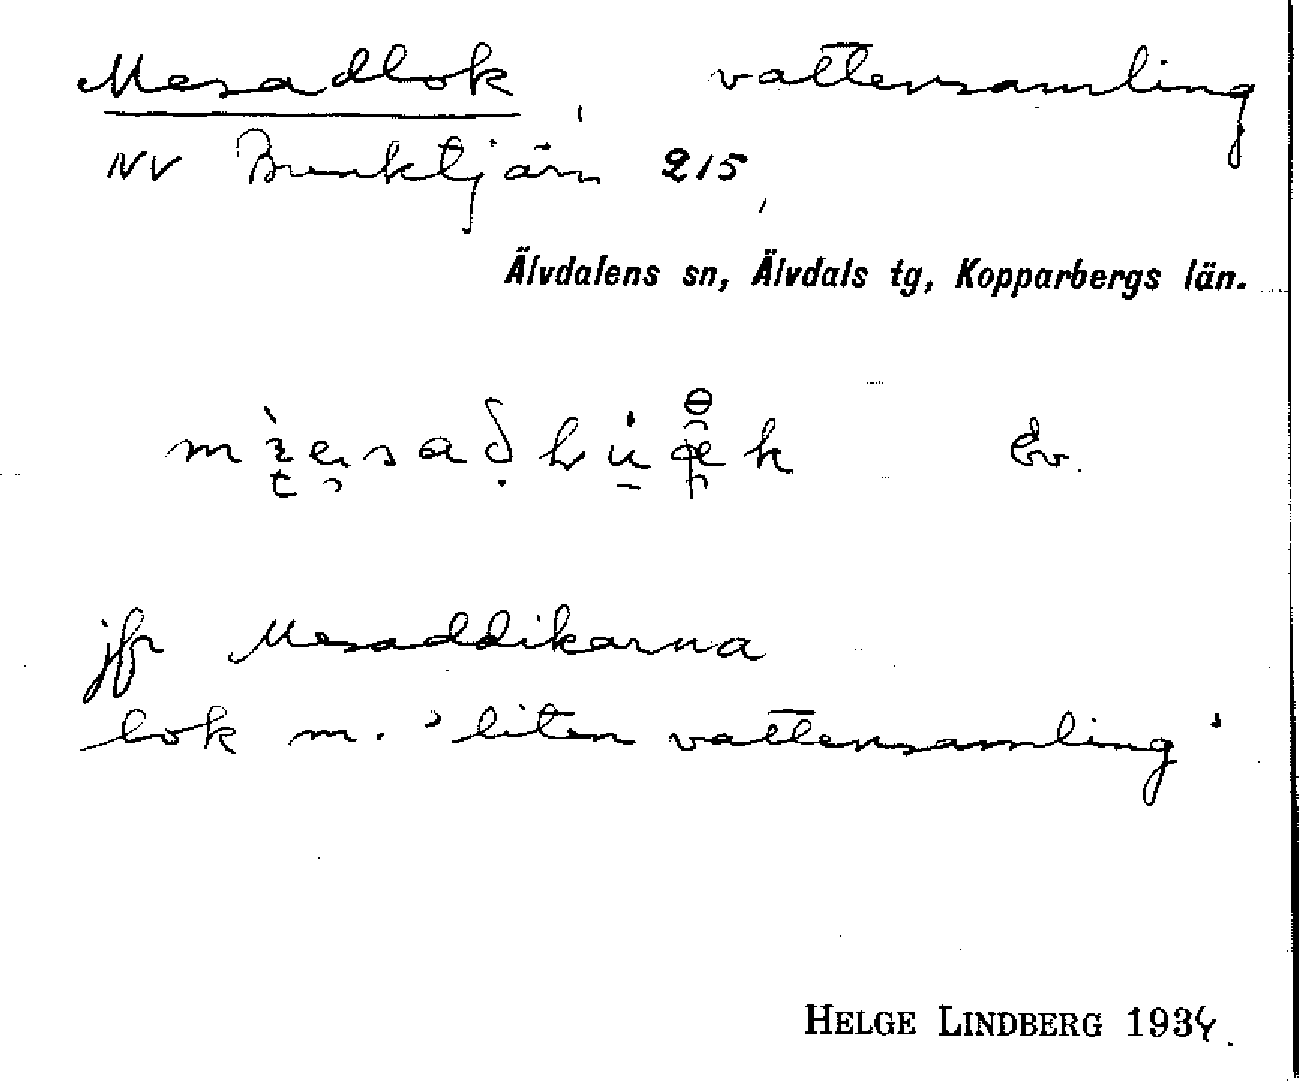 Mesadlok vattensamling
NV Brunktjärn 215,
Älvdalens sn, Älvdals tg, Kopparbergs län.
Ev.
jfr Mesaddikarna
lok m. 'liten vattensamling'
HELGE LINDBERG 1934.